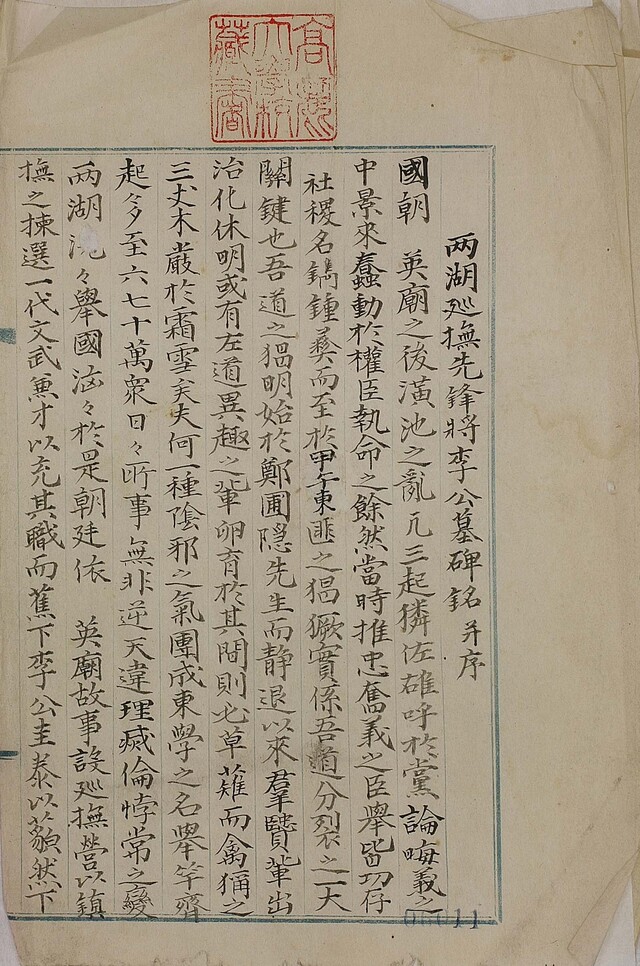 高麗
大學校
藏書
兩湖巡撫先鋒將李公墓碑銘 并序
國朝 英廟之後潢池之亂凢三起獜佐雄呼於黨論晦義之
中景來蠢動於權臣執命之餘然當時推忠奮義之臣舉皆功存
社稷名鐫鍾彛而至於甲午東匪之猖獗實係吾道分裂之一大
關鍵也吾道之猖明始於鄭圃隱先生而静退以來羣贒輩出
治化休明或有左道異趣之軰卵育於其間則必草薙而禽獮之
三丈木嚴於霜雪矣夫何一種陰邪之氣團成東學之名舉竿齊
起々多至六七十萬衆日々所事無非逆天違理滅倫悖常之變
兩湖 々舉國洶々於是朝廷依 英廟故事設巡撫營以鎮
撫之揀選一代文武兼才以充其職而蕉下李公圭泰以藐然下
11